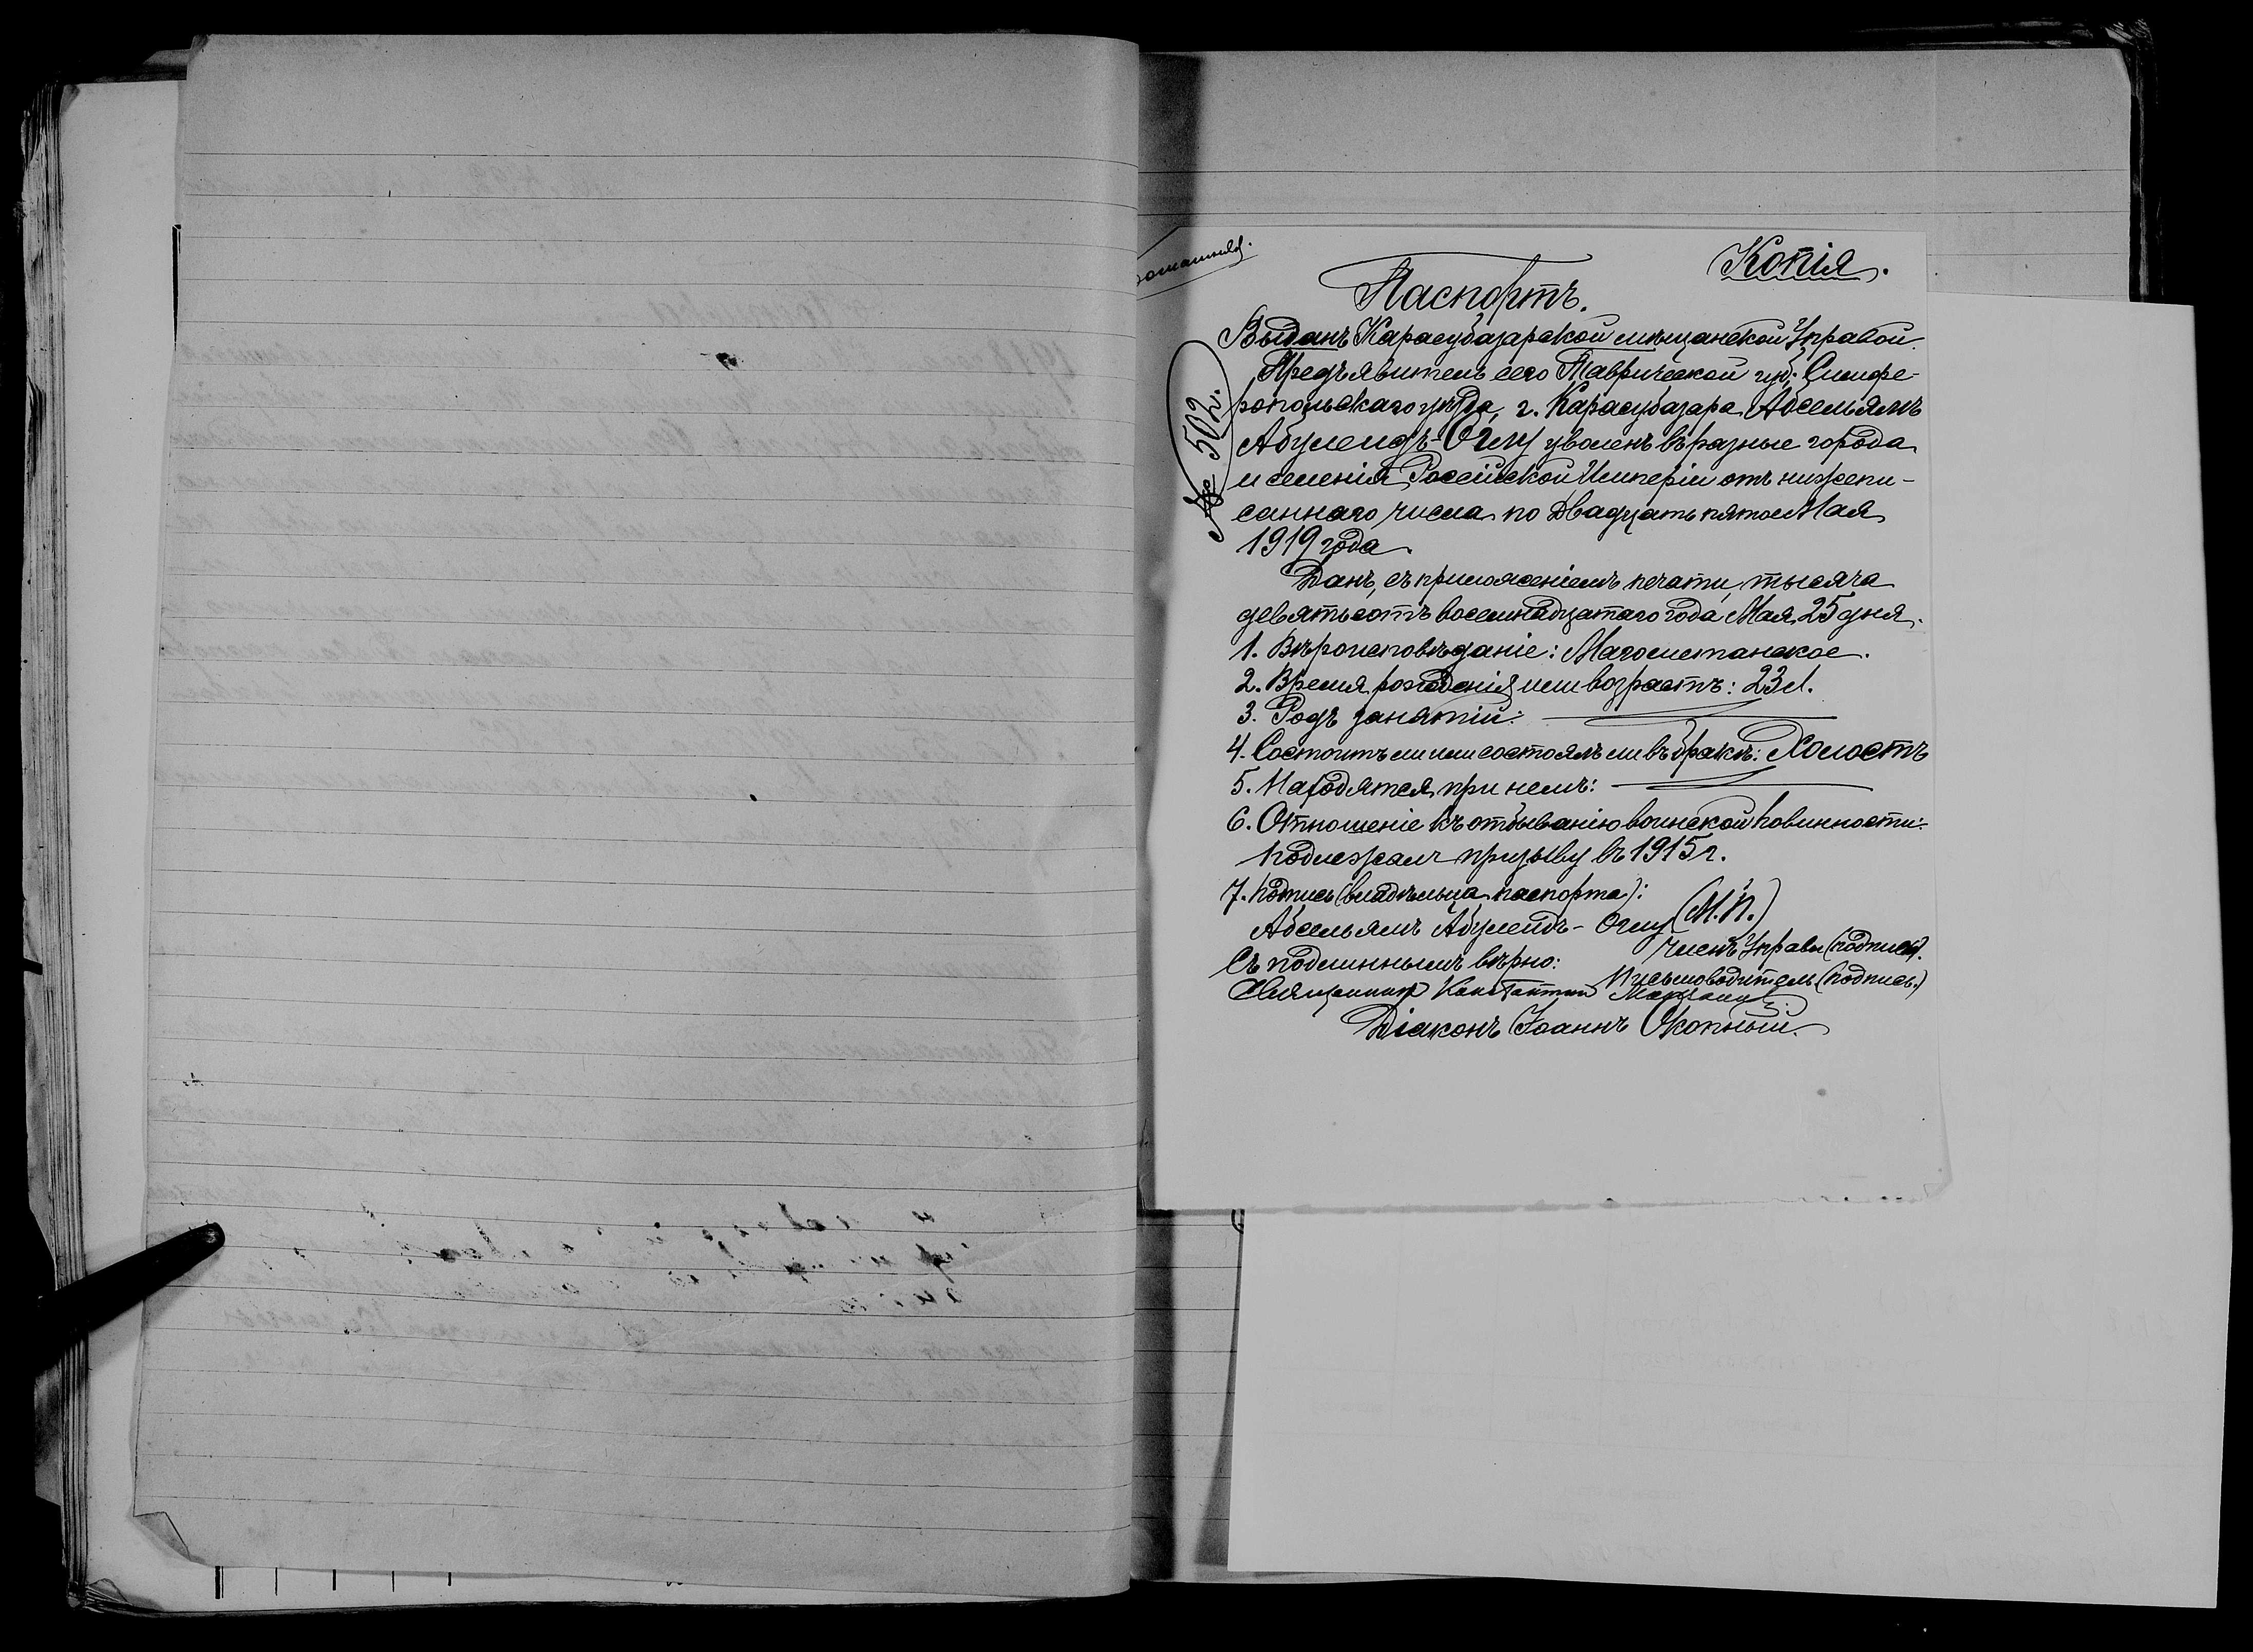 Копія.
Паспортъ.
№ 502.
Выданъ Карасубазарской мѣщанской Управой.
Предъявитель сего Таврической губ. Симфе-
ропольскаго уѣзда, г. Карасубазара Абсельямъ
Абулеидъ-Оглу уволенъ въ разные города
и селенія Россійской Имперіи отъ нижепи-
саннаго числа по двадцать пятое Мая
1919 года.
Данъ, съ приложеніемъ печати, тысяча
девятьсотъ восемнадцатаго года Мая 25 дня.
1. Вѣроисповѣданіе: Магометанское.
2. Время рожденія или возрастъ: 23 л.
3. Родъ занятій:
4. Состоитъ ли или состоялъ ли въ бракѣ: Холостъ
5. Находятся при немъ:
6. Отношеніе къ отбыванію воинской повинности:
подлежалъ призыву въ 1915 г.
7. Подпись (владѣльца паспорта):
Абсельямъ Абулеидъ-Оглу (М.П.)
Членъ Управы (подпись).
Съ подлиннымъ вѣрно:
Письмоводитель (подпись.)
Священникъ Константин
Діаконъ Іоаннъ Окопный.